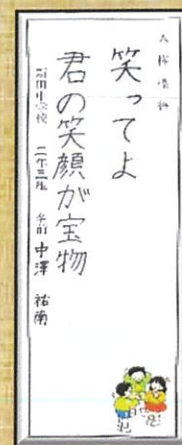 人権標語
笑ってよ
君の笑顔が宝物
中学校 二年三組 名前 中澤 祐南